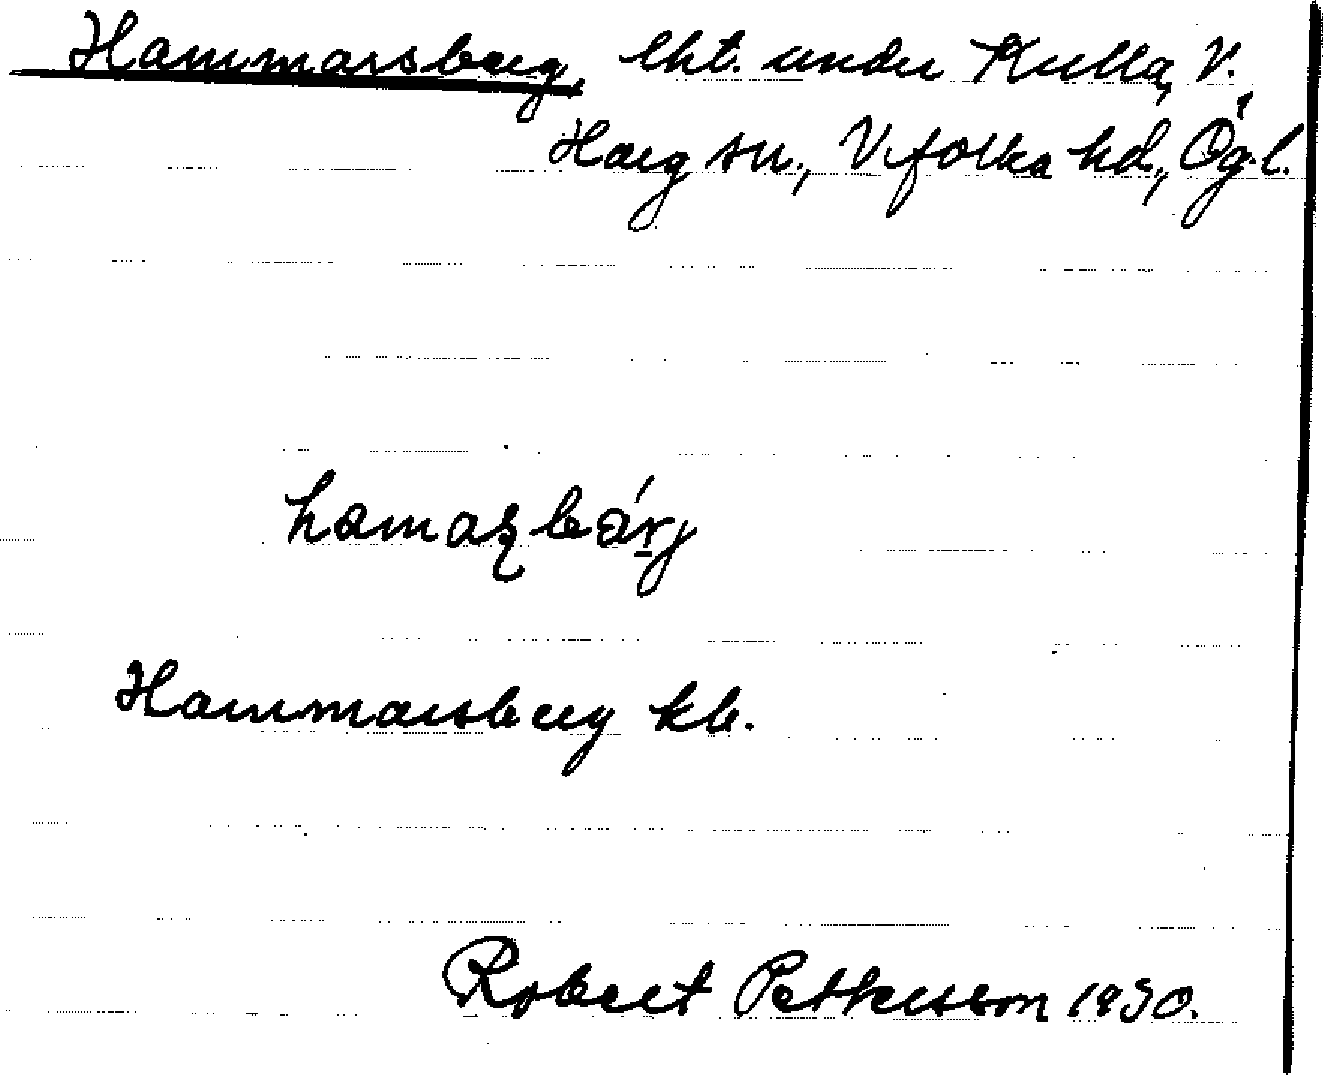 Hammarsberg, lht. under Kulla, V.
Harg sn., Vifolka hd., Ög. l.
hamaʂbǽrj
Hammarsberg kb.
Robert Pettersson 1930.